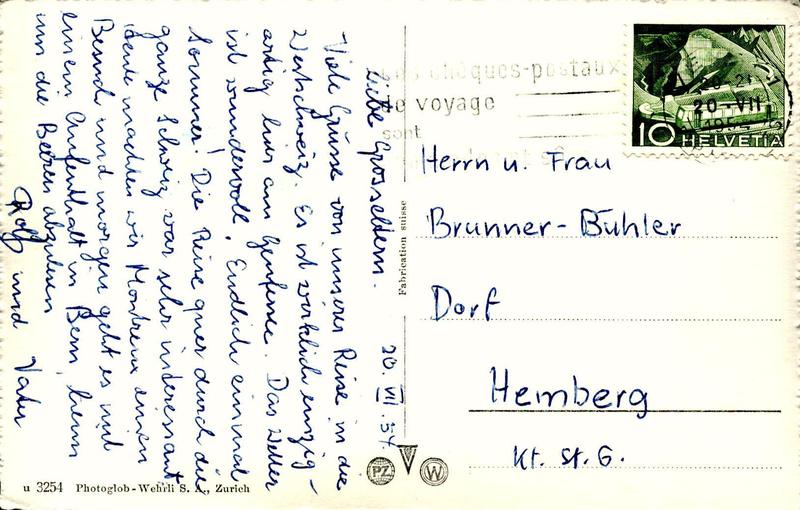 20. VII. 54.
Liebe Grosseltern.
Viele Grüsse von unserer Reise in die
Westschweiz. Es ist wirklich einzig-
artig hier am Genfersee. Das Wetter
ist wundervoll. Endlich einmal
Sommer! Die Reise quer durch die
ganze Schweiz war sehr interessant
Heute machten wir Montreux einen
Besuch und morgen geht es mit
einem Aufenthalt in Bern, heim
um die Beeren abzulesen
Rolf und Vater
chèques-postaux
de voyage
sont
20-VII
10 HELVETIA
Herrn u. Frau
Brunner-Bühler
Dorf
Hemberg
Kt. St. G.
Fabrication suisse
PZ W
u 3254 Photoglob-Wehrli S. A., Zurich